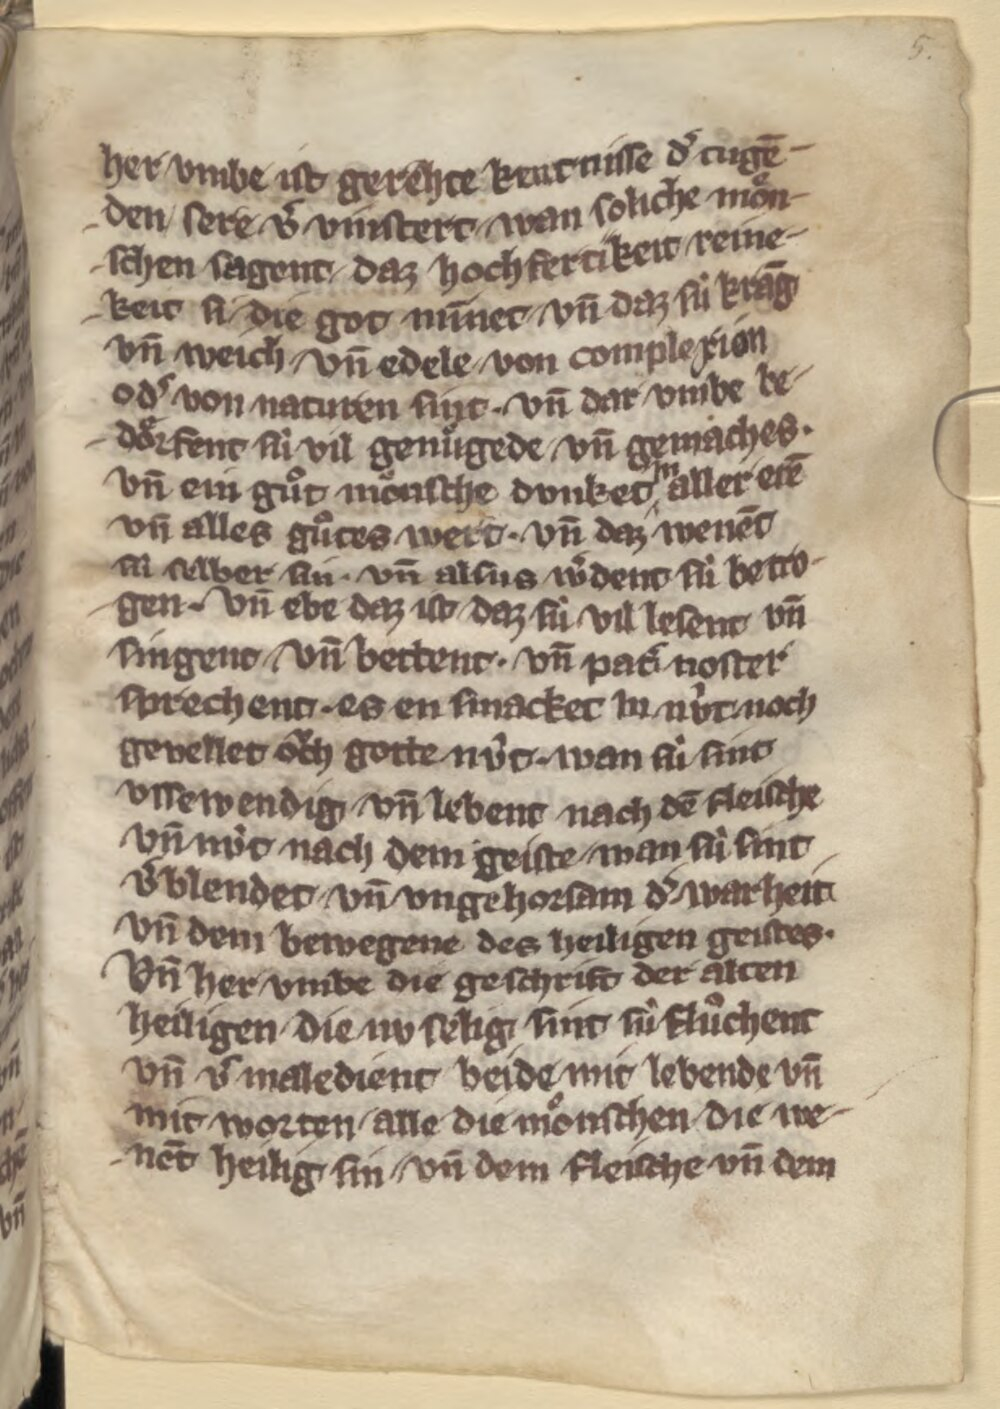 5.
her vmbe ist gerehte kentnisse dˢ tugē-
den sere vˢ vinstert wan soliche mönͦ-
schen sagent daz hochfertikeit reine-
keit si die got miͤnet vn̄ daz sú krāg
vn̄ weich vn̄ edele von complexion
odˢ von naturen sint. vn̄ dar vmbe be-
doͤrfent sú vil genuͤgede vn̄ gemaches.
vn̄ ein guͦt moͤnsche dvnket in aller erē
vn̄ alles guͦtes wert. vn̄ daz wenēt
sú selber sin. vn̄ alsus wˢdent sú betro-
gen. Vn̄ ebe daz ist daz sú vil lesent vn̄
singent vn̄ bettent. vn̄ patˢ noster
sprechent. es en smacket in nvͥt noch
gevellet oͮch gotte nvͥt. wan sú sint
vssewendig vn̄ lebent nach dē fleische
vn̄ nvͥt nach dem geiste wan sú sint
vˢblendet vn̄ vngehorsam dˢ warheit
vn̄ dem bewegene des heiligen geistes.
Vn̄ her vmbe die geschrift der alten
heiligen die nv selig sint sú fluͦchent
vn̄ vˢmaledient beide mit lebende vn̄
mit worten alle die moͤnschen die we-
nēt heilig sin vn̄ dem fleische vn̄ dem